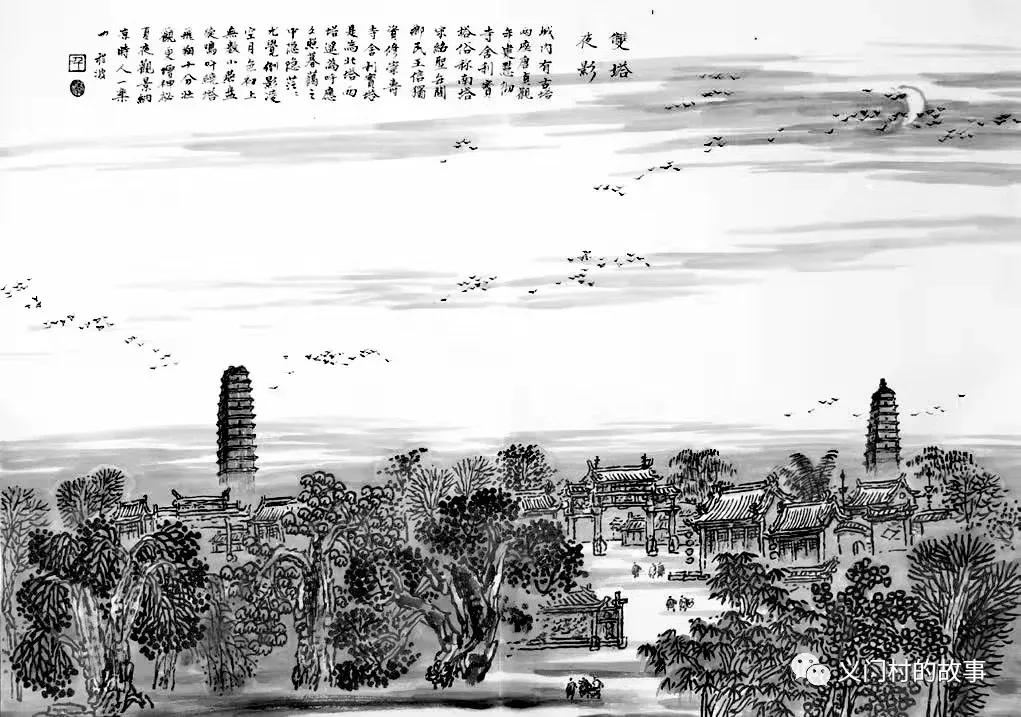 雙塔
夜影
城内有古塔
两座唐貞觀
年建慧彻
寺舍利寶
塔俗称南塔
宋紹聖年間
鄉民王信獨
資修崇寿
寺舍利寶塔
是為北塔两
塔遥為呼應
夕照暮靄之
中隐隐茫〻
尤覺倒影淩
空月色初上
無數小燕盘
旋鳴叶繞塔
飛翔十分壯
觀更增神秘
夏夜觀景納
凉時人一樂
义门村的故事